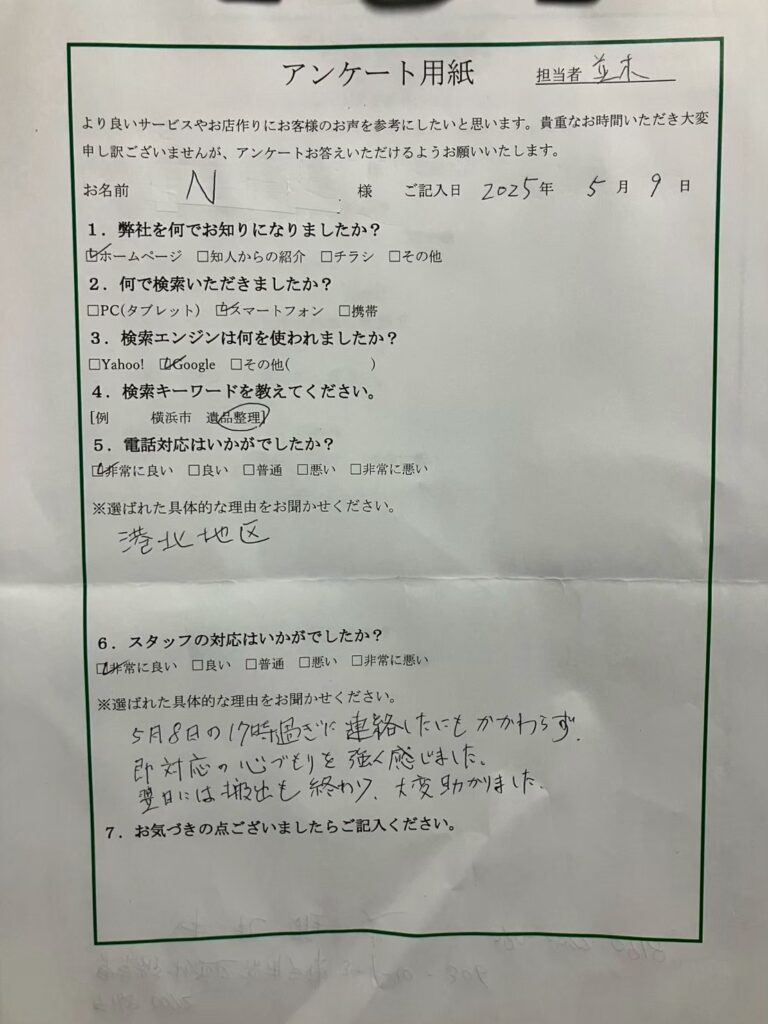 アンケート用紙 担当者 並木
より良いサービスやお店作りにお客様のお声を参考にしたいと思います。貴重なお時間いただき大変
申し訳ございませんが、アンケートお答えいただけるようお願いいたします。
お名前 N 様 ご記入日 2025年 5月 9日
1．弊社を何でお知りになりましたか？
☑ホームページ □知人からの紹介 □チラシ □その他
2．何で検索いただきましたか？
□PC(タブレット) ☑スマートフォン □携帯
3．検索エンジンは何を使われましたか？
□Yahoo! ☑Google □その他( )
4．検索キーワードを教えてください。
[例 横浜市 遺品整理]
5．電話対応はいかがでしたか？
☑非常に良い □良い □普通 □悪い □非常に悪い
※選ばれた具体的な理由をお聞かせください。
港北地区
6．スタッフの対応はいかがでしたか？
☑非常に良い □良い □普通 □悪い □非常に悪い
※選ばれた具体的な理由をお聞かせください。
5月8日の17時過ぎに連絡したにもかかわらず、
即対応の心づもりを強く感じました。
翌日には搬出も終わり、大変助かりました。
7．お気づきの点ございましたらご記入ください。